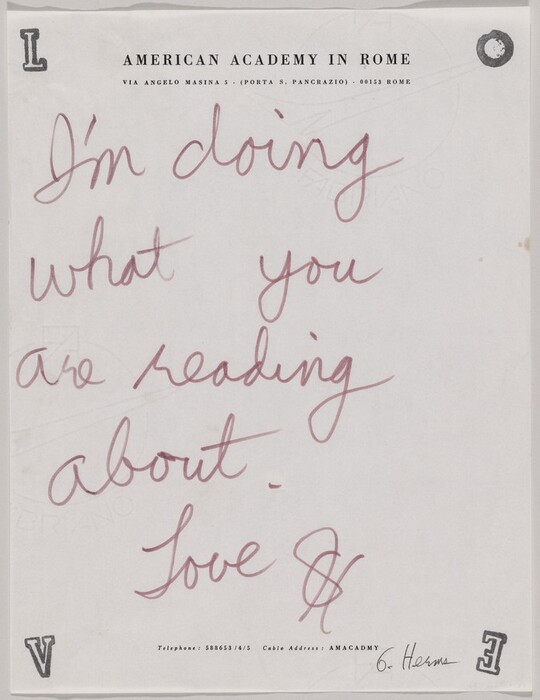 L O
AMERICAN ACADEMY IN ROME
VIA ANGELO MASINA 5 - (PORTA S. PANCRAZIO) - 00153 ROME
I'm doing
what you
are reading
about.
Love
Telephone: 588653/4/5 Cable Address: AMACADMY
G. Herms
V E